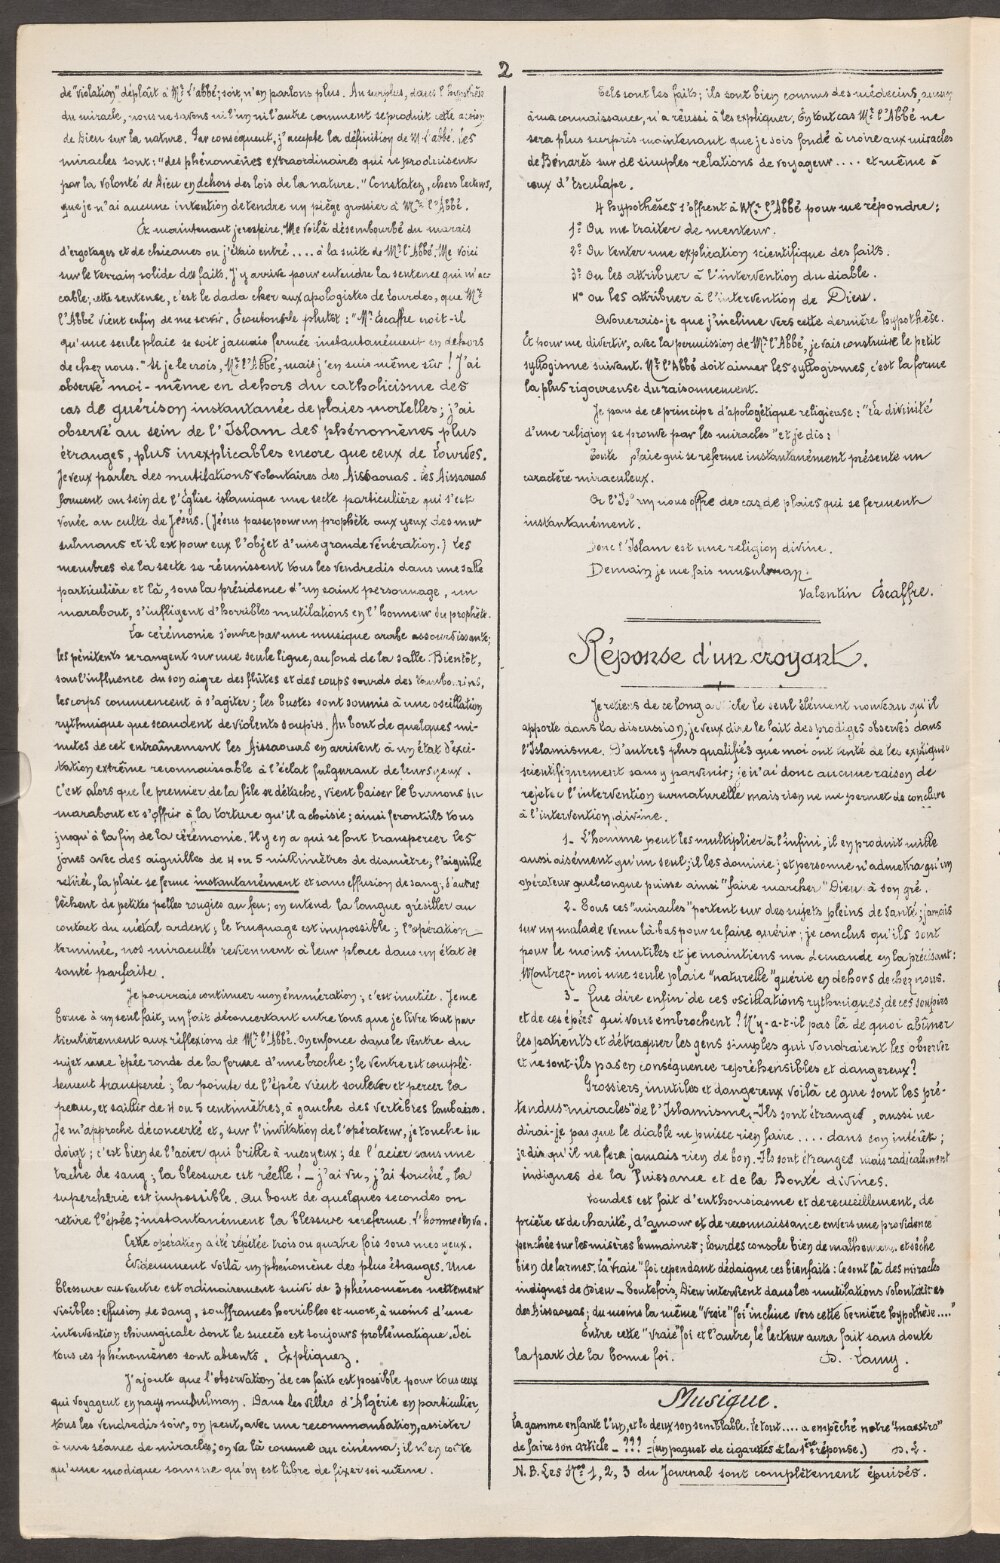 2
de "violation" déplaît à Mr. l'abbé; soit, n'en parlons plus. Au surplus, dans l'hypothèse
du miracle, nous ne savons ni l'un ni l'autre comment se produit cette action
de Dieu sur la nature. Par conséquent, j'accepte la définition de M. l'abbé. Les
miracles sont: "des phénomènes extraordinaires qui se produisent
par la volonté de Dieu en dehors des lois de la nature." Constatez, chers lecteurs,
que je n'ai aucune intention de tendre un piège grossier à Mr. l'Abbé.
Et maintenant je respire. Me voilà désembourbé du marais
d'ergotages et de chicanes où j'étais entré .... à la suite de Mr. l'Abbé. Me voici
sur le terrain solide des faits. J'y arrive pour entendre la sentence qui m'ac-
cable; cette sentense, c'est le dada cher aux apologistes de Lourdes, que Mr.
l'Abbé vient enfin de me servir. Écoutons-le plutôt: "Mr. Escaffre croit-il
qu'une seule plaie se soit jamais fermée instantanément en dehors
de chez nous." Si je le crois, Mr. l'Abbé, mais j'en suis même sûr! J'ai
observé moi-même en dehors du catholicisme des
cas de guérison instantanée de plaies mortelles; j'ai
observé au sein de l'Islam des phénomènes plus
étranges, plus inexplicables encore que ceux de Lourdes.
Je veux parler des mutilations volontaires des Aissaouas. Les Aissaouas
forment au sein de l'Église islamique une secte particulière qui s'est
vouée au culte de Jésus. (Jésus passe pour un prophète aux yeux des mu-
sulmans et il est pour eux l'objet d'une grande vénération.) Les
membres de la secte se réunissent tous les vendredis dans une salle
particulière et là, sous la présidence d'un saint personnage, un
marabout, s'infligent d'horribles mutilations en l'honneur du prophète.
La cérémonie s'ouvre par une musique arabe assourdissante;
les pénitents se rangent sur une seule ligne, au fond de la salle. Bientôt,
sous l'influence du son aigre des flûtes et des coups sourds des tambourins,
les corps commencent à s'agiter; les bustes sont soumis à une oscillation
rythmique que scandent de violents soupirs. Au bout de quelques mi-
nutes de cet entraînement les Aissaouas en arrivent à un état d'exci-
tation extrême reconnaissable à l'éclat fulgurant de leurs yeux.
C'est alors que le premier de la file se détache, vient baiser le burnous du
marabout et s'offrir à la torture qu'il a choisie; ainsi feront-ils tous
jusqu'à la fin de la cérémonie. Il y en a qui se font transpercer les
joues avec des aiguilles de 4 ou 5 millimètres de diamètre, l'aiguille
retirée, la plaie se ferme instantanément et sans effusion de sang; d'autres
lèchent de petites pelles rougies au feu; on entend la langue grésiller au
contact du métal ardent; le truquage est impossible; l'opération
terminée, nos miraculés reviennent à leur place dans un état de
santé parfaite.
Je pourrais continuer mon énumération; c'est inutile. Je me
borne à un seul fait, un fait déconcertant entre tous que je livre tout par-
ticulièrement aux réflexions de Mr. l'Abbé. On enfonce dans le ventre du
sujet une épée ronde de la forme d'une broche; le ventre est complè-
tement transpercé; la pointe de l'épée vient soulever et percer la
peau, et saillir de 4 ou 5 centimètres, à gauche des vertèbres lombaires.
Je m'approche déconcerté et, sur l'invitation de l'opérateur, je touche du
doigt; c'est bien de l'acier qui brille à mes yeux; de l'acier sans une
tache de sang; la blessure est réelle! — j'ai vu, j'ai touché, la
supercherie est impossible. Au bout de quelques secondes on
retire l'épée; instantanément la blessure se referme. L'homme s'en va.
Cette opération a été répétée trois ou quatre fois sous mes yeux.
Évidemment voilà un phénomène des plus étranges. Une
blessure au ventre est ordinairement suivie de 3 phénomènes nettement
visibles: effusion de sang, souffrances horribles et mort, à moins d'une
intervention chirurgicale dont le succès est toujours problématique. Ici
tous ces phénomènes sont absents. Expliquez.
J'ajoute que l'observation de ces faits est possible pour tous ceux
qui voyagent en pays musulman. Dans les villes d'Algérie en particulier,
tous les vendredis soir, on peut, avec une recommandation, assister
à une séance de miracles; on va là comme au cinéma; il n'en coûte
qu'une modique somme qu'on est libre de fixer soi-même.
Tels sont les faits; ils sont bien connus des médecins, aucun
à ma connaissance, n'a réussi à les expliquer. En tout cas Mr. l'Abbé ne
sera plus surpris maintenant que je sois fondé à croire aux miracles
de Bénarès sur de simples relations de voyageur .... et même à
ceux d'Esculape.
4 hypothèses s'offrent à Mr. l'Abbé pour me répondre:
1º Ou me traiter de menteur.
2º Ou tenter une explication scientifique des faits.
3º Ou les attribuer à l'intervention du diable.
4º Ou les attribuer à l'intervention de Dieu.
Avouerais-je que j'incline vers cette dernière hypothèse.
Et pour me divertir, avec la permission de Mr. l'Abbé, je vais construire le petit
syllogisme suivant. Mr. l'Abbé doit aimer les syllogismes, c'est la forme
la plus rigoureuse du raisonnement.
Je pars de ce principe d'apologétique religieuse: "La divinité
d'une religion se prouve par les miracles" et je dis:
Toute plaie qui se referme instantanément présente un
caractère miraculeux.
Or l'Islam nous offre des cas de plaies qui se ferment
instantanément.
Donc l'Islam est une religion divine.
Demain je me fais musulman.
Valentin Escaffre.
Réponse d'un croyant.
Je retiens de ce long article le seul élément nouveau qu'il
apporte dans la discussion, je veux dire le fait des prodiges observés dans
l'Islamisme. D'autres plus qualifiés que moi ont tenté de les expliquer
scientifiquement sans y parvenir; je n'ai donc aucune raison de
rejeter l'intervention surnaturelle mais rien ne me permet de conclure
à l'intervention divine.
1_ L'homme peut les multiplier à l'infini, il en produit mille
aussi aisément qu'un seul; il les domine; et personne n'admettra qu'un
opérateur quelconque puisse ainsi "faire marcher" Dieu à son gré.
2_ Tous ces "miracles" portent sur des sujets pleins de santé; jamais
sur un malade venu là-bas pour se faire guérir; je conclus qu'ils sont
pour le moins inutiles et je maintiens ma demande en la précisant:
Montrez-moi une seule plaie "naturelle" guérie en dehors de chez nous.
3_ Que dire enfin de ces oscillations rythmiques, de ces soupirs
et de ces épées qui vous embrochent? N'y-a-t-il pas là de quoi abîmer
les patients et détraquer les gens simples qui voudraient les observer
et ne sont-ils pas en conséquence repréhensibles et dangereux?
Grossiers, inutiles et dangereux voilà ce que sont les pré-
tendus "miracles" de l'Islamisme._ Ils sont étranges, aussi ne
dirai-je pas que le diable ne puisse rien faire .... dans son intérêt;
je dis qu'il ne fera jamais rien de bon. Ils sont étranges mais radicalement
indignes de la Puissance et de la Bonté divines.
Lourdes est fait d'enthousiasme et de recueillement, de
prière et de charité, d'amour et de reconnaissance envers une providence
penchée sur les misères humaines; Lourdes console bien de malheureux et sèche
bien de larmes. La "vraie" foi cependant dédaigne ces bienfaits: Ce sont là des miracles
indignes de Dieu_ Toutefois, Dieu intervient dans les mutilations volontaires
des Aissaouas; du moins la même "vraie" foi incline vers cette dernière hypothèse...."
Entre cette "vraie" foi et l'autre, le lecteur aura fait sans doute
la part de la bonne foi.
D. Lamy.
Musique.
La gamme enfante l'un, et le deux son semblable. Le tout .... a empêché notre "maestro"
de faire son article _ ??? = (un paquet de cigarettes à la 1ère réponse.) D. L.
N.B. Les Nos 1, 2, 3 du Journal sont complètement épuisés.